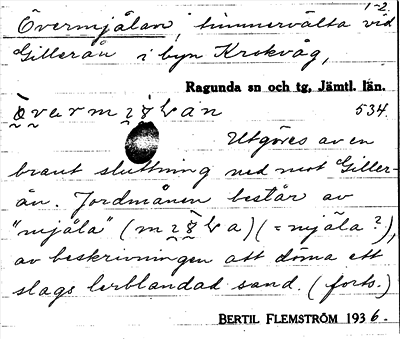 1-2.
Övermjälan, timmervälta vid
Gillerån i byn Krokvåg,
Ragunda sn och tg, Jämtl. län.
534.
Utgöres av en
brant sluttning ned mot Giller-
ån. Jordmånen består av
"mjäla" (= mjäla?),
av beskrivningen att döma ett
slags lerblandad sand. (forts.)
BERTIL FLEMSTRÖM 1936.